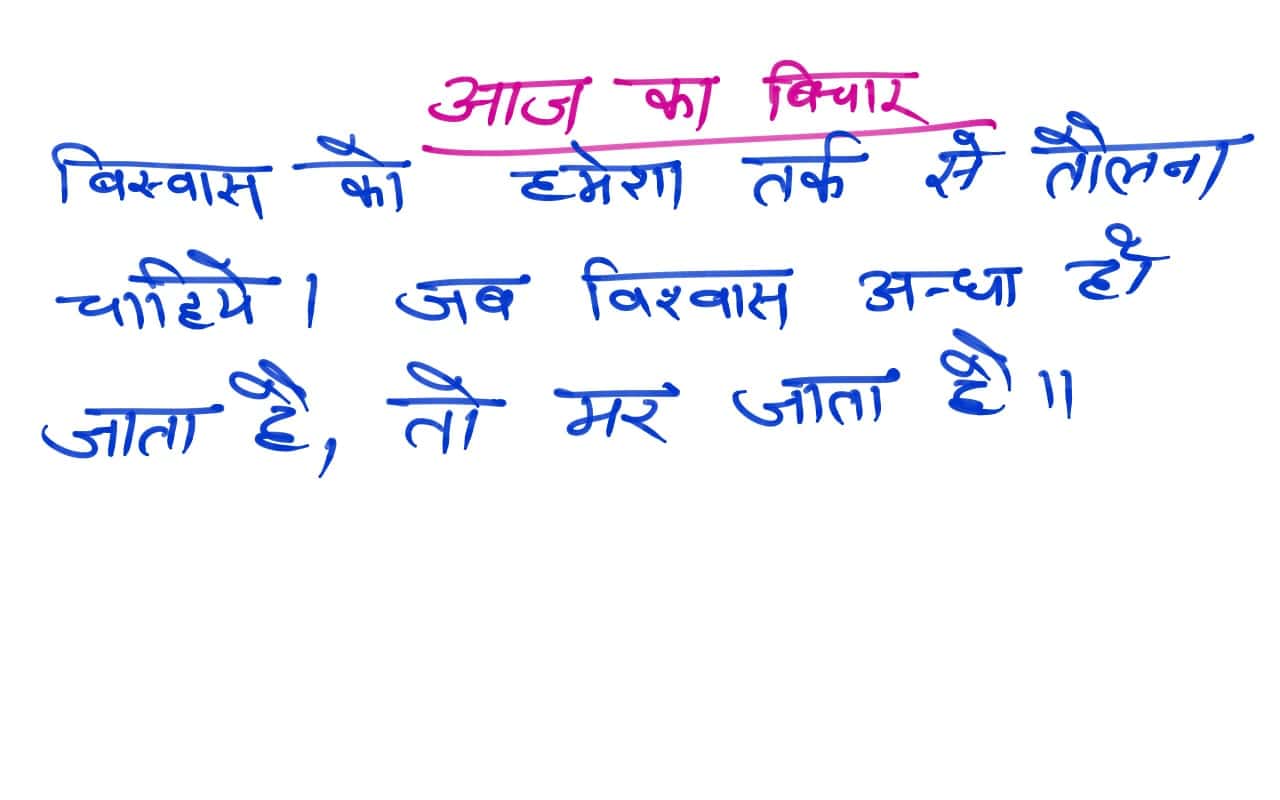 आज का विचार
विस्वास को हमेशा तर्क से तौलना
चाहिये । जब विश्वास अन्धा हो
जाता है, तो मर जाता है ॥